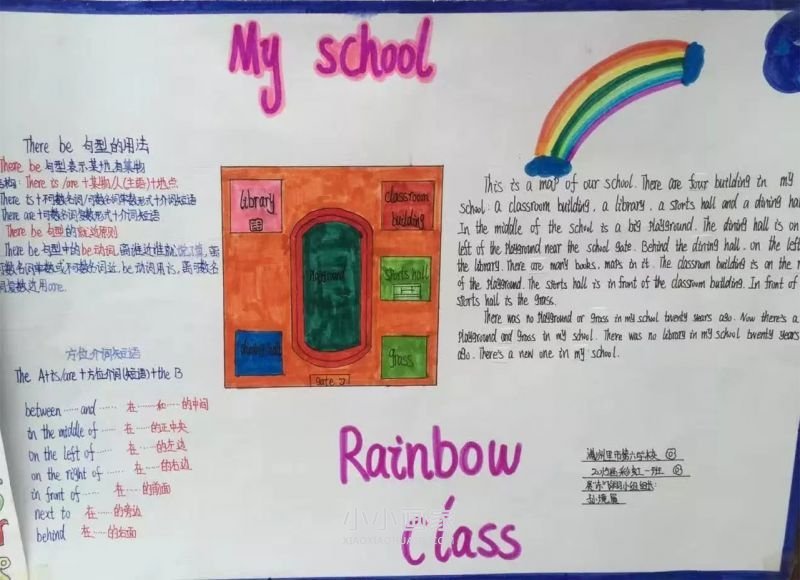 My school
There be 句型的用法
There be 句型表示某地有某物
结构: There is /are +某物/人(主语)+地点
There is +不可数名词/可数名词单数形式+介词短语
There are +可数名词复数形式+介词短语
There be 句型的就近原则
There be 句型中的be动词,离谁近谁就说了算,离
可数名词单数或不可数名词近,be动词用is,离可数名
词复数近用are.
方位介词短语
The A+is/are +方位介词(短语)+the B
between ······ and ······ 在······和······的中间
in the middle of ······ 在······的正中央
on the left of ······ 在······的左边
on the right of ······ 在······的右边
in front of ······ 在······的前面
next to 在······的旁边
behind 在······的后面
library
classroom
building
Playground
Sports hall
dining hall
grass
Gate
This is a map of our school. There are four building in my
school: a classroom building, a library, a sports hall and a dining hall
In the middle of the school is a big Playground. The dining hall is on
left of the Playground near the school gate. Behind the dining hall, on the left
the library. There are many books, maps in it. The classroom building is on the r
of the Playground. The sports hall is in front of the classroom building. In front of
sports hall is the grass.
There was no Playground or grass in my school twenty years ago. Now there's a
Playground and grass in my school. There was no library in my school twenty years
ago. There's a new one in my school.
Rainbow
class
满洲里市第六学校
彩虹一班
小小画家
XIAOXIAOHUAJIA.COM